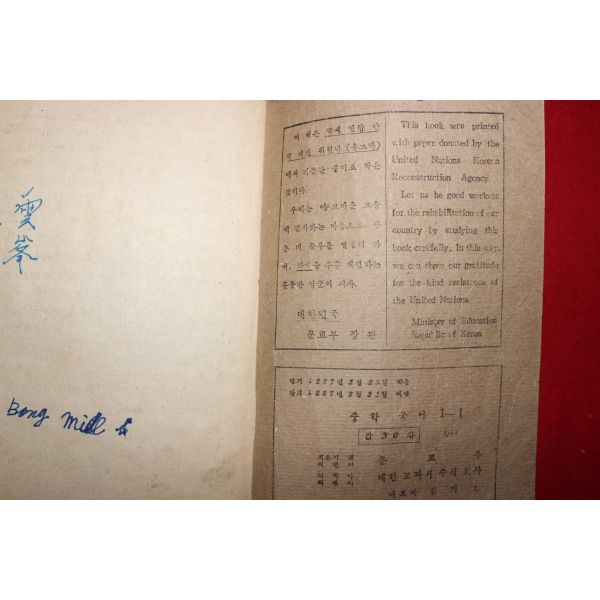 雲峯
Bong Mill
이 책은 국제 연합 한
국 재건 위원단 (운끄라)
에서 기증한 종이로 박은
것이다.
우리는 이 고마운 도움
에 감사하는 마음으로, 한
층 더 공부를 열심히 하
여, 한국을 부흥 재건하는
훌륭한 일군이 되자.
대한민국
문교부 장관
This book was printed
with paper donated by the
United Nations Korean
Reconstruction Agency.
Let us be good workers
for the rehabilitation of our
country by studying this
book carefully. In this way,
we can show our gratitude
for the kind assistance of
the United Nations.
Minister of Education
Republic of Korea
단기 4287년 3월 25일 박음
단기 4287년 3월 31일 펴냄
중학 국어 1—1
값 30환
문 교 부
대한 교과서 주식 회사
대표자